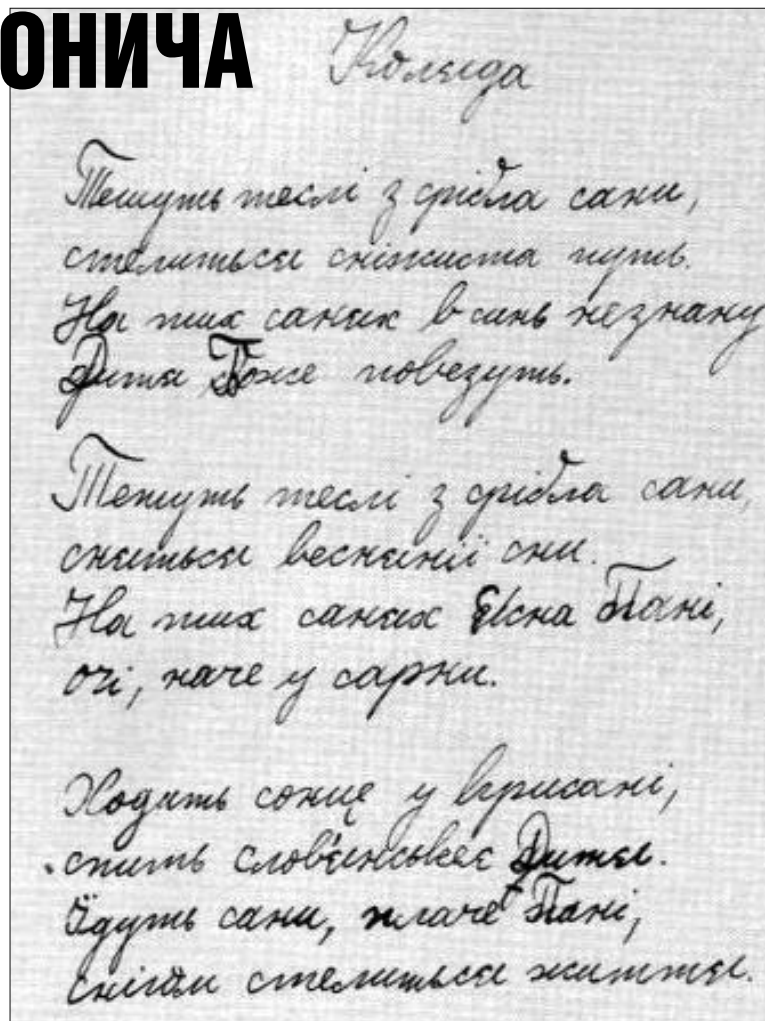 ОНИЧА
Коляда
Тешуть теслі з срібла сани,
стелиться сніжиста путь.
На тих санях в синь незнану
Дитя Боже повезуть.
Тешуть теслі з срібла сани,
сняться веснянії сни.
На тих санях Ясна Пані,
очі, наче у сарни.
Ходить сонце у крисані,
спить слов'янськеє Дитя.
Їдуть сани, плаче Пані,
снігом стелиться життя.